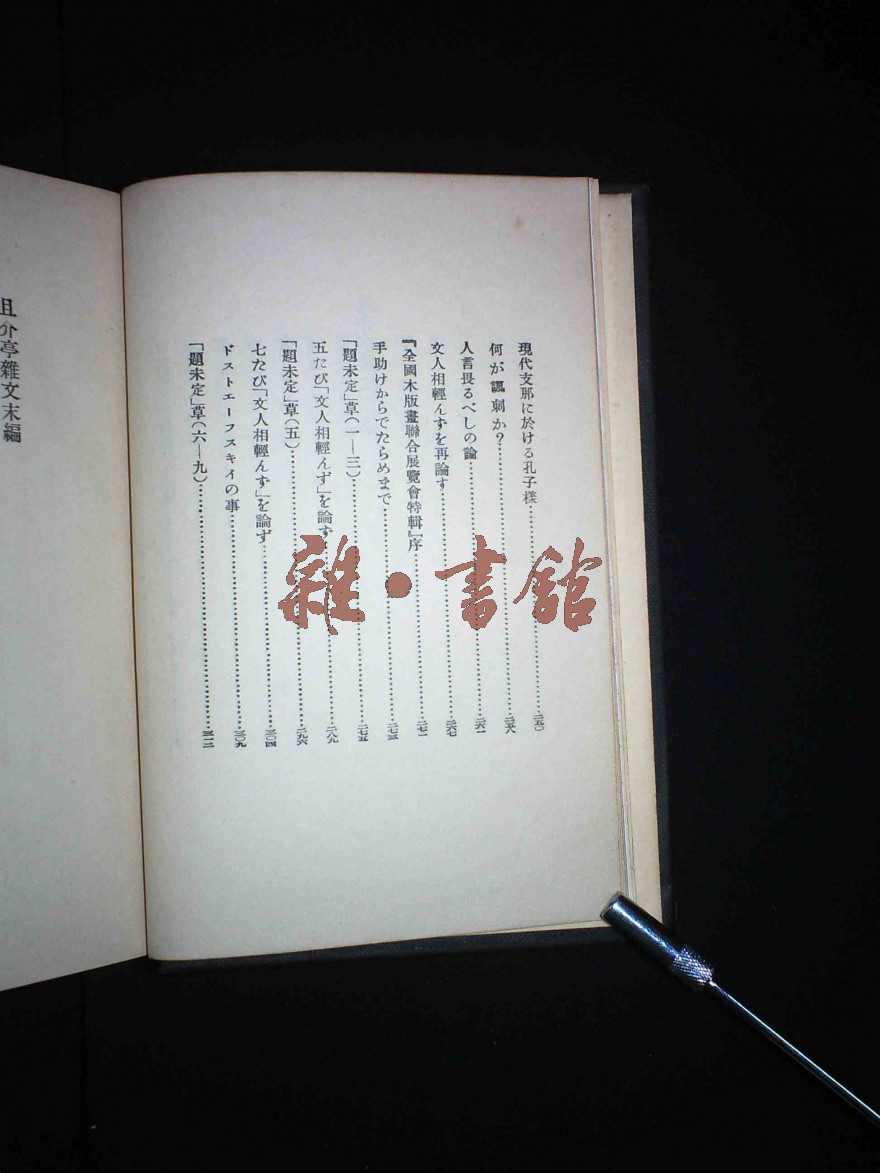 現代支那に於ける孔子樣……二五〇
何が諷刺か？……二五八
人言畏るべしの論……二六一
文人相輕んずを再論す……二六七
『全國木版畫聯合展覽會特輯』序……二七一
手助けからでたらめまで……二七三
「題未定」草（一—三）……二七五
五たび「文人相輕んず」を論ず……二八九
「題未定」草（五）……二九六
七たび「文人相輕んず」を論ず……三〇四
ドストエーフスキイの事……三〇九
「題未定」草（六—九）……三一三
且介亭雜文末編
雜·書館